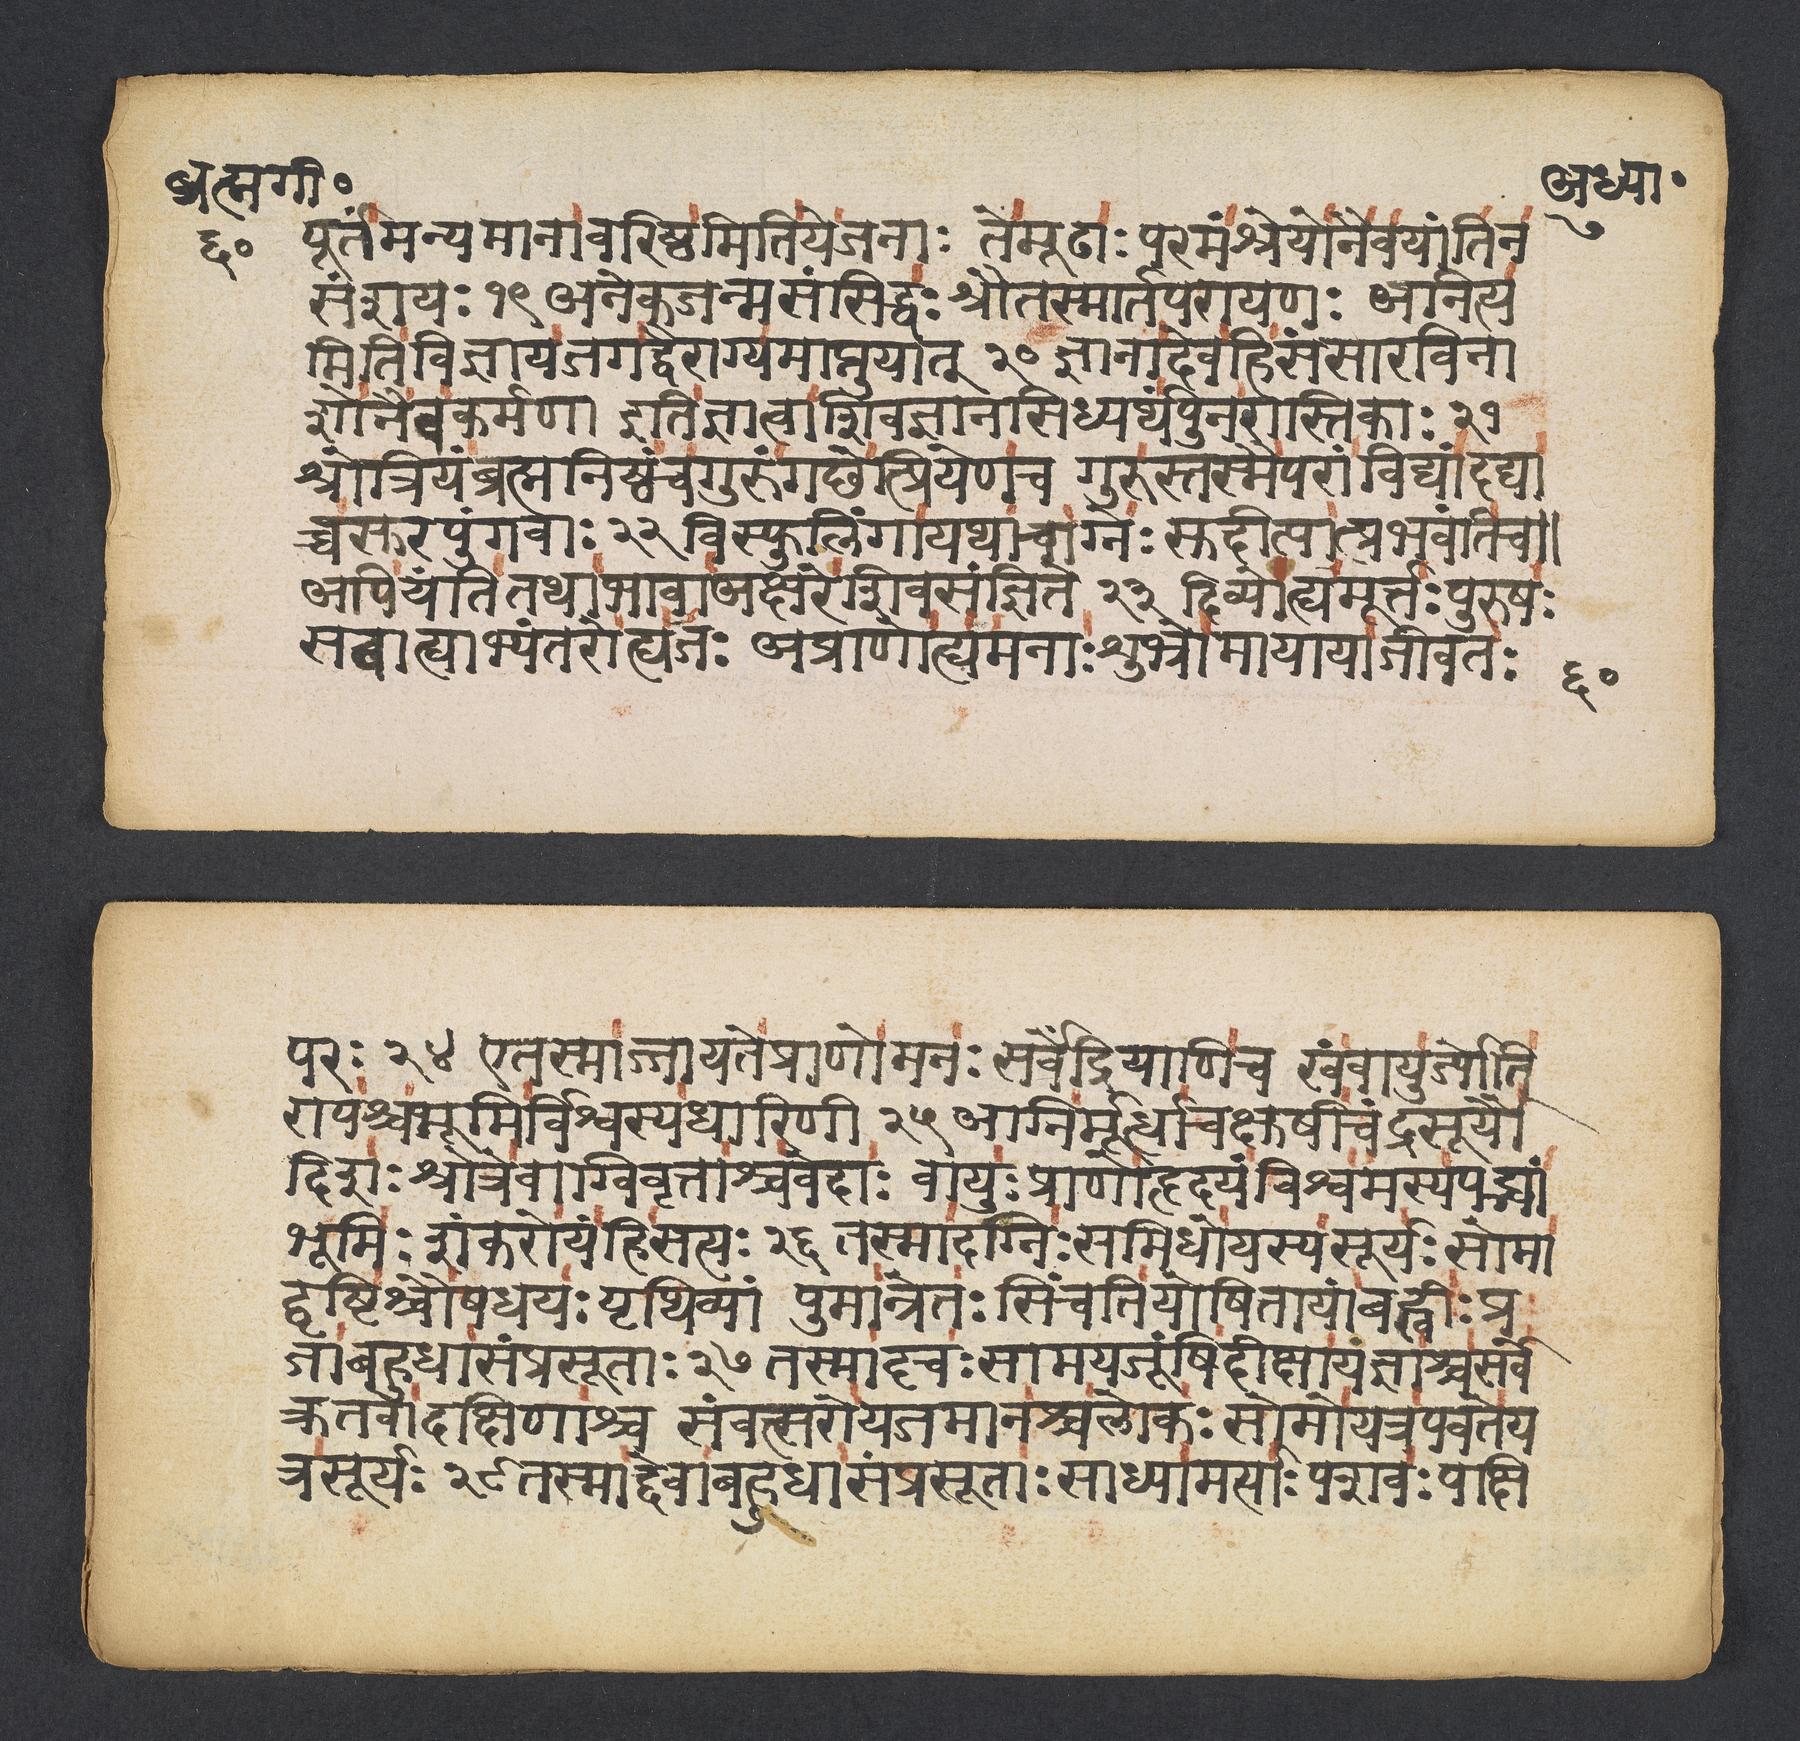 ब्रह्मगी॰
अध्या॰
६०
७
पूर्तंमन्यमानावरिष्ठमितियेजनाः तेमूढाः परमंश्रेयोनैवयांतिन
संशयः १९ अनेकजन्मसंसिद्धः श्रौतस्मार्तपरायणः अनित्य
मितिविज्ञायजगद्वैराग्यमाप्नुयात् २० ज्ञानादेवहिसंसारविना
शोनैवकर्मणा इतिज्ञात्वाशिवज्ञानसिध्यर्थंपुनरास्तिकाः २१
श्रोत्रियंब्रह्मनिष्ठंचगुरुंगछेत्प्रियेणच गुरुस्तस्मैपरांविद्यांदद्या
च्चसुरपुंगवाः २२ विस्फुलिंगायथाचाग्नेः सुदीप्तात्प्रभवंतिच॥
अपियंतितथाभावाअक्षरेशिवसंज्ञिते २३ दिव्योह्यमूर्त्तः पुरुषः
सबाह्याभ्यंतरोह्यजः अप्राणोह्यमनाः शुभ्रोमायायाजीवतः
६०
परः २४ एतस्माज्जायतेप्राणोमनः सर्वेंद्रियाणिच खंवायुर्ज्योति
रापश्चभूमिर्विश्वस्यधारिणी २५ अग्निर्मूर्धाचक्षुषीचंद्रसूर्यौ
दिशः श्रोत्रेवाग्विवृत्ताश्चवेदाः वायुः प्राणोहृदयंविश्वमस्यपद्भ्यां
भूमिः शंकरोयंहिसत्यः २६ तस्मादग्निः समिधोयस्यसूर्यः सोमा
द्वृष्टिश्चौषधयः पृथिव्यां पुमान्रेतः सिंचतियोषितायांबह्वीः प्र
जाबहुधासंप्रसूताः २७ तस्मादृचः सामयजूंषिदीक्षायज्ञाश्चसर्वे
क्रतवोदक्षिणाश्च संवत्सरोयजमानश्चलोकः सोमोयत्रपवतेय
त्रसूर्यः २८ तस्माद्देवाबहुधासंप्रसूताः साध्यामर्त्याः पशवः पक्षि